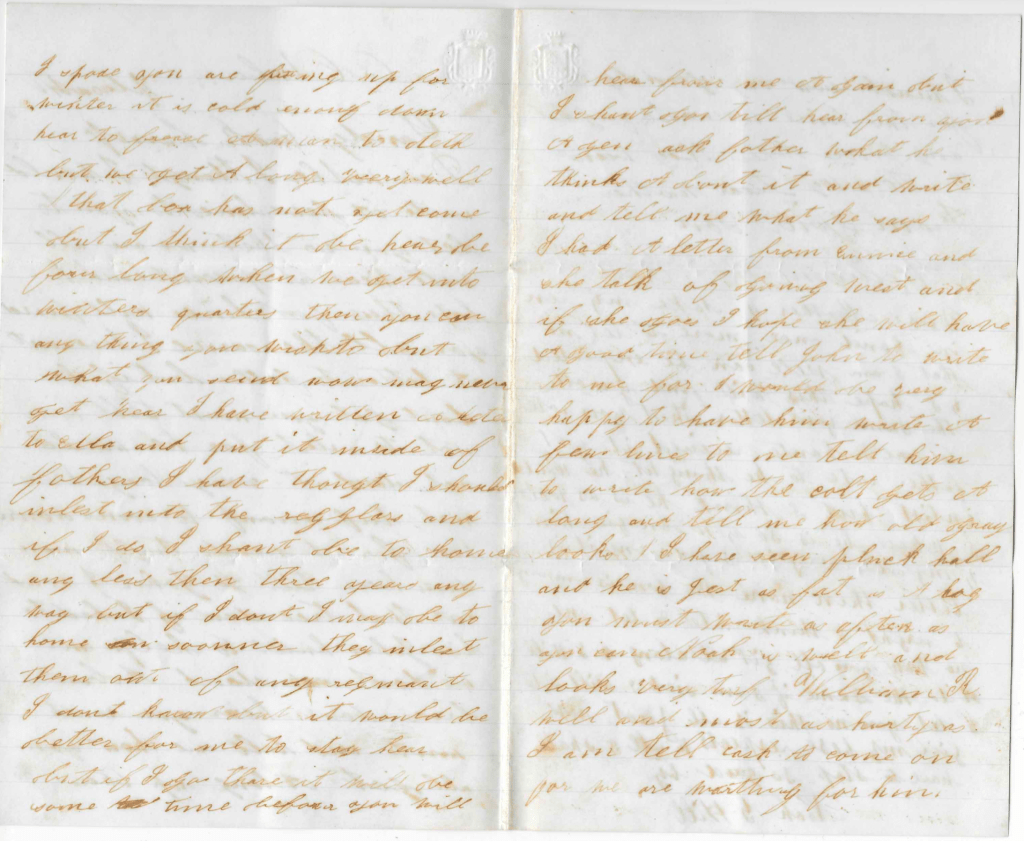 I spose you are fixing up for
winter it is cold enouf down
hear to freeze A man to deth
but we get A long very well
that box has not yet come
but I think it be hear be
four long when we get into
winters quarties then you can
any thing you wish to but
what you seind now may never
get hear I have written
to ella and put it inside of
fathers I have thougt I should
inlest into the regglars and
if I do I shant be to home
any less then three years any
way but if I dont I may be to
home soonner they inlest
them out of any regmant
I dont know but it would be
better for me to stay hear
but if I go thare it will be
some time before you will
hear from me A gain but
I shant go till hear from you
A gen ask father what he
thinks A bout it and write
and tell me what he says
I had A letter from eunice and
she talk of going west and
if she goes I hope she will have
A good time tell John to write
to me for I would be very
happy to have him write A
few line to me tell him
to write how the colt gets A
long and tell me how old gray
looks I have seen pluck hall
and he is jest as fat as A hog
you must write as often as
you can Noah is well and
looks very tuf William R
well and most as harty as
I am tell cash to come on
for we are waithing for him.